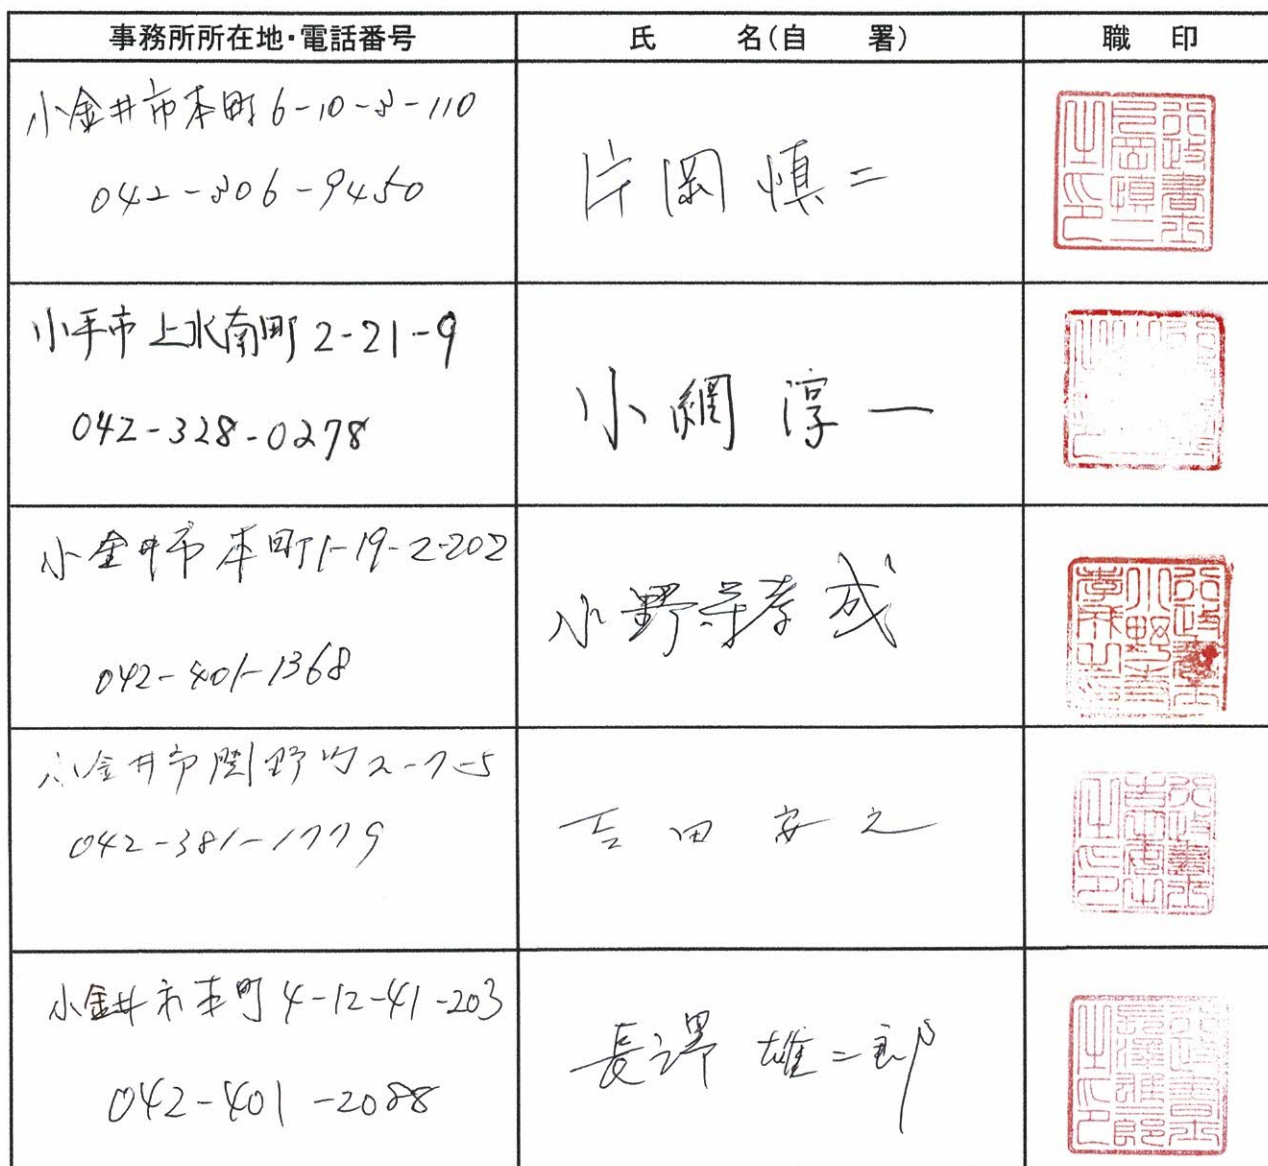 事務所所在地・電話番号 氏 名(自 署) 職 印
小金井市本町6-10-3-110
042-306-9450
片岡 慎二
行政書士片岡慎二之印
小平市上水南町2-21-9
042-328-0278
小網 淳一
小金井市本町1-19-2-202
042-401-1368
小野寺孝成
小金井市関野町2-7-5
042-381-1779
吉田安之
小金井市本町4-12-41-203
042-401-2088
長澤 雄二郎
行政書士長澤雄二郎之印